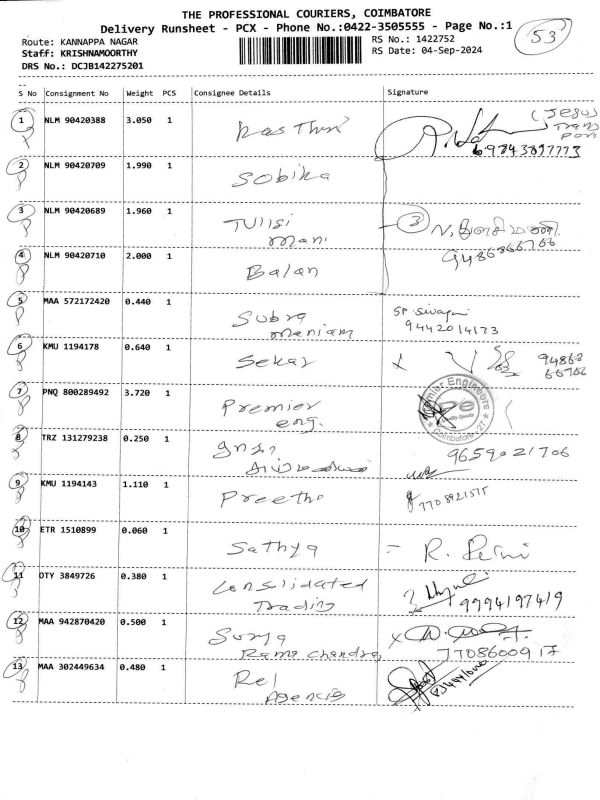 THE PROFESSIONAL COURIERS, COIMBATORE
Delivery Runsheet - PCX - Phone No.:0422-3505555 - Page No.:1
53
Route: KANNAPPA NAGAR
RS No.: 1422752
Staff: KRISHNAMOORTHY
RS Date: 04-Sep-2024
DRS No.: DCJB142275201
S No Consignment No Weight PCS Consignee Details Signature
1 NLM 90420388 3.050 1 Kasthuri
(Jesus
2 NLM 90420709 1.990 1 Sobika
3 NLM 90420689 1.960 1 Tulisi
mani 3 N. துளசி மணி
9486866766
4 NLM 90420710 2.000 1 Balan
5 MAA 572172420 0.440 1 Subra
maniam
9442014173
6 KMU 1194178 0.640 1 Sekar
94868
66766
7 PNQ 800289492 3.720 1 Premier
eng.
Premier Engineers
Coimbatore-27
8 TRZ 131279238 0.250 1
9659021706
9 KMU 1194143 1.110 1 Preetha
7708921515
10 ETR 1510899 0.060 1 Sathya - R.
11 OTY 3849726 0.380 1 Consolidated
Trading
9994197419
12 MAA 942870420 0.500 1 Surya
Rama Chandra
7708600917
13 MAA 302449634 0.480 1 Rel
Agencis